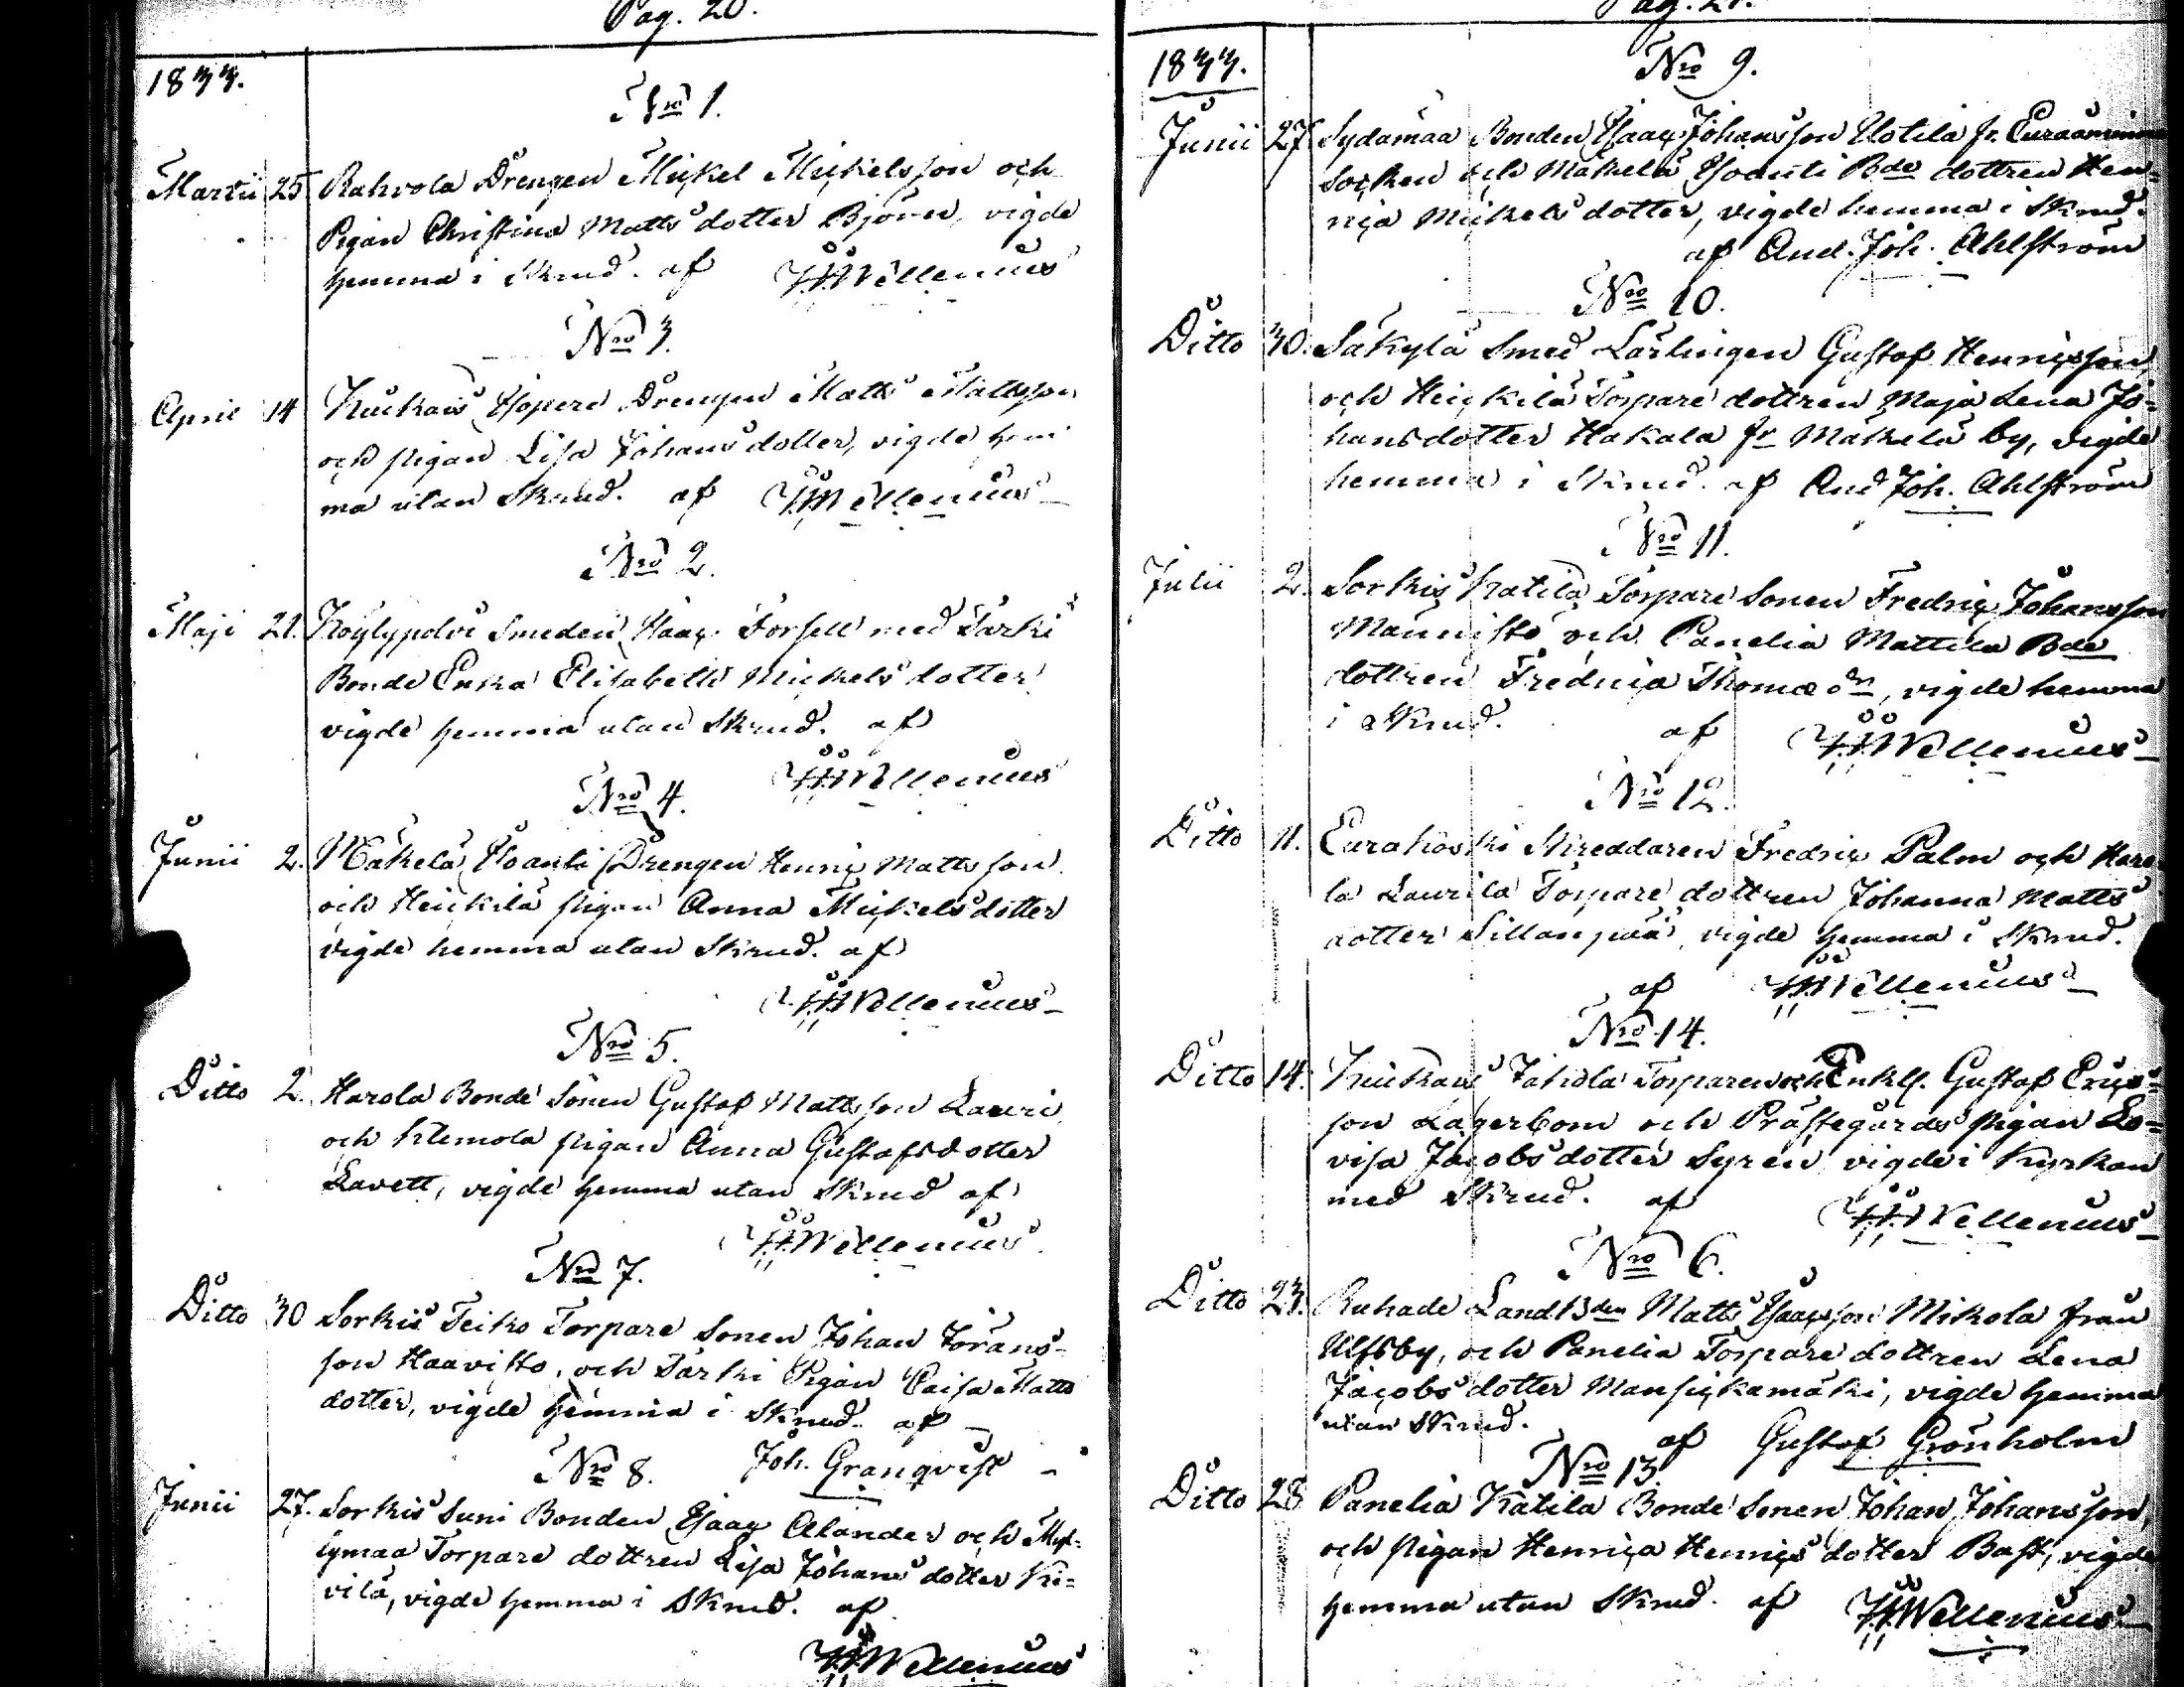 Pag. 20.
1833.
Nro 1.
Martii 25 Rahvola Drengen Mickel Mickelsson och
Pigan Christina Matts dotter Björn, vigde
hemma i Skrud. af Wellenius
Nro 3.
April 14 Kiukais Drengen Matts Mattsson
och pigan Lisa Johans dotter, vigde hem
ma utan Skrud. af Wellenius
Nro 2.
Maji 21. Köylypolvi Smeden Isaac Forsell med Tarki
Bonde Enka Elisabeth Mickels dotter
vigde hemma utan Skrud. af
Wellenius
Nro 4.
Junii 2. Mäkelä Isoanti Drengen Henric Matts son
och Heickilä pigan Anna Mickels dotter
vigde hemma utan Skrud. af
Wellenius
Nro 5.
Ditto 2. Harola Bonde Sonen Gustaf Mattsson Lauri
och Klemola pigan Anna Gustafsdotter
Lavett, vigde hemma utan Skrud af
Wellenius
Nro 7.
Ditto 30 Sorkis Teiko Torpare Sonen Johan Jörans-
son Haavisto, och Tarki Pigan Caisa Matts
dotter, vigde hemma i Skrud. af
Joh. Granqvist
Nro 8.
Junii 27. Sorkis Suni Bonden Isaac Alander och
Torpare dottren Lisa Johans dotter Ki=
vilä, vigde hemma i Skrud. af
Wellenius
Pag. 21.
1833.
Nro 9.
Junii 27 Sydämaa Bonden Isaac Johansson Uotila fr. Euraåminne
Socken och Mäkelä Isoanti Bde dottren Hen=
rica Mickels dotter, vigde hemma i Skrud.
af And. Joh. Ahlström
Nro 10.
Ditto 30. Säkylä Smed Lärlingen Gustaf Henricsson
och Heickilä Torpare dottren Maja Lena Jo=
hansdotter Hakala fr Mäkelä by, vigde
hemma i Skrud. af And Joh. Ahlström
Nro 11.
Julii 2. Sorkis Katila Torpare Sonen Fredric Johansson
Männistö och Panelia Mattila Bde
dottren Fredrica Thomæ dr, vigde hemma
i Skrud. af Wellenius
Nro 12.
Ditto 11. Eurakoski Skreddaren Fredric Palm och Haro
la Laurila Torpare dottren Johanna Matts
dotter Sillanpää, vigde hemma i Skrud.
af Wellenius
Nro 14.
Ditto 14. Kiukais Torparen och Enkl. Gustaf Erics=
son Lagerbom och Prästegårds pigan Lo=
visa Jacobs dotter Syren vigde i Kyrkan
med Skrud. af Wellenius
Nro 6.
Ditto 23. Ruhade LandBden Matts Isaacsson Mikola från
Ulfsby, och Panelia Torpare dottren Lena
Jacobs dotter Mansickamäki, vigde hemma
utan Skrud. af Gustaf Grönholm
Nro 13
Ditto 28 Panelia Katila Bonde Sonen Johan Johansson,
och pigan Henrica Henrics dotter Bast, vigde
hemma utan Skrud. af Wellenius